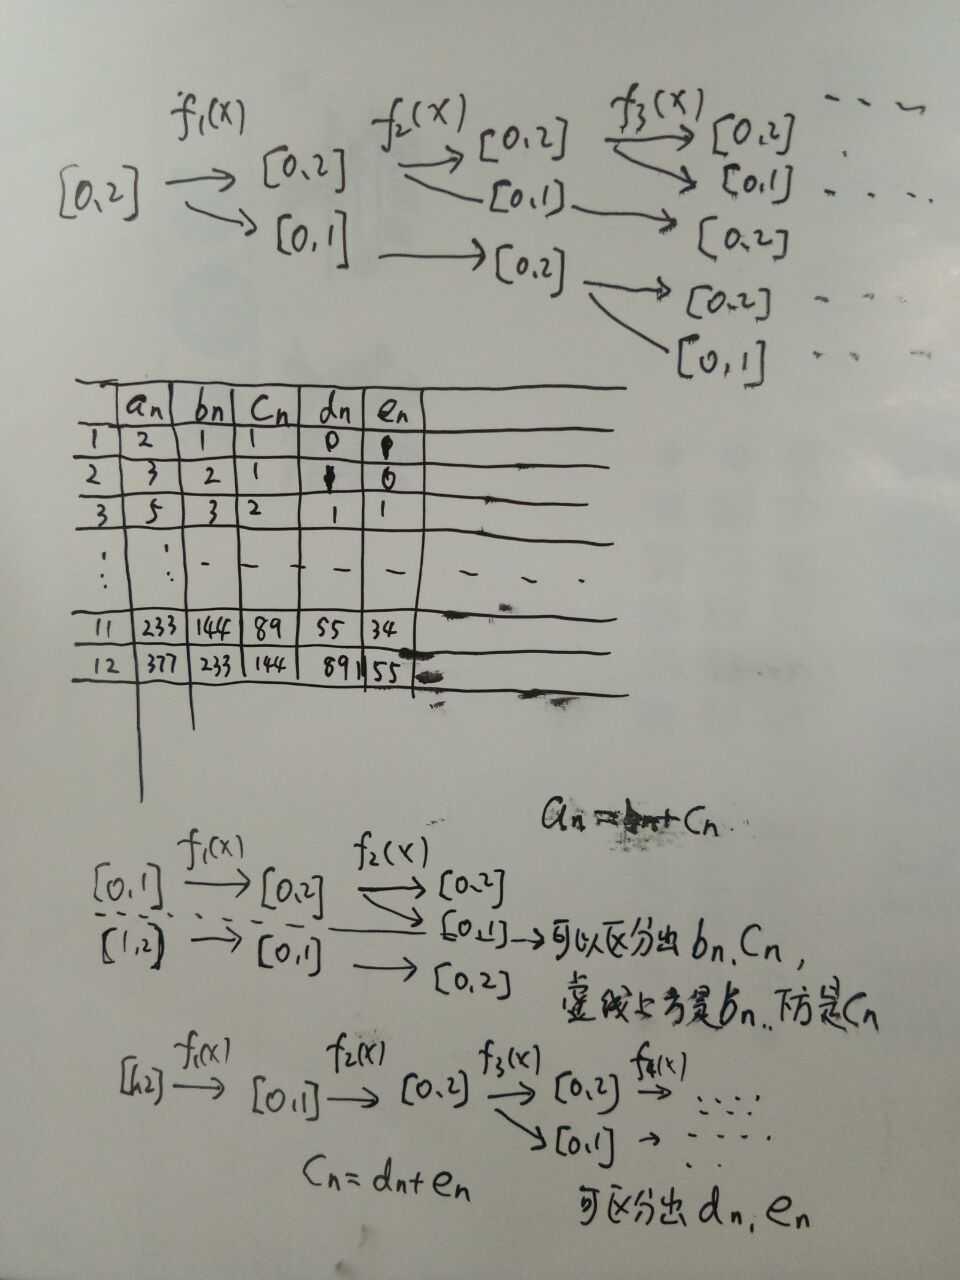 f₁(x) f₂(x) f₃(x)
[0,2] → [0,2] → [0,2] → [0,2] - - -
[0,1] [0,1] [0,1] - - - -
→ [0,2] → [0,2]
[0,2] - - -
[0,1] - - -
aₙ bₙ cₙ dₙ eₙ
1 2 1 1 0
2 3 2 1 0
3 5 3 2 1 1
⋮ ⋮ - - - - - - - -
11 233 144 89 55 34
12 377 233 144 89 55
aₙ = bₙ + cₙ
f₁(x) f₂(x)
[0,1] → [0,2] → [0,2]
[1,2] → [0,1] [0,1] → 可以区分出 bₙ, cₙ,
→ [0,2]
虚线上方是bₙ, 下方是cₙ
f₁(x) f₂(x) f₃(x) f₄(x)
[1,2] → [0,1] → [0,2] → [0,2] → ....
[0,1] → - - - -
cₙ = dₙ + eₙ
可区分出 dₙ, eₙ